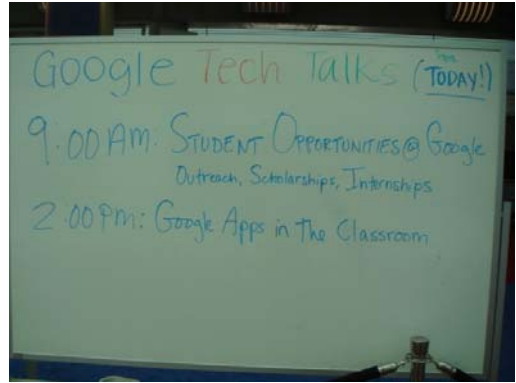 Google Tech Talks (TODAY!)
9:00 AM. STUDENT OPPORTUNITIES @ Google
Outreach, Scholarships, Internships
2:00 PM: Google Apps in The Classroom